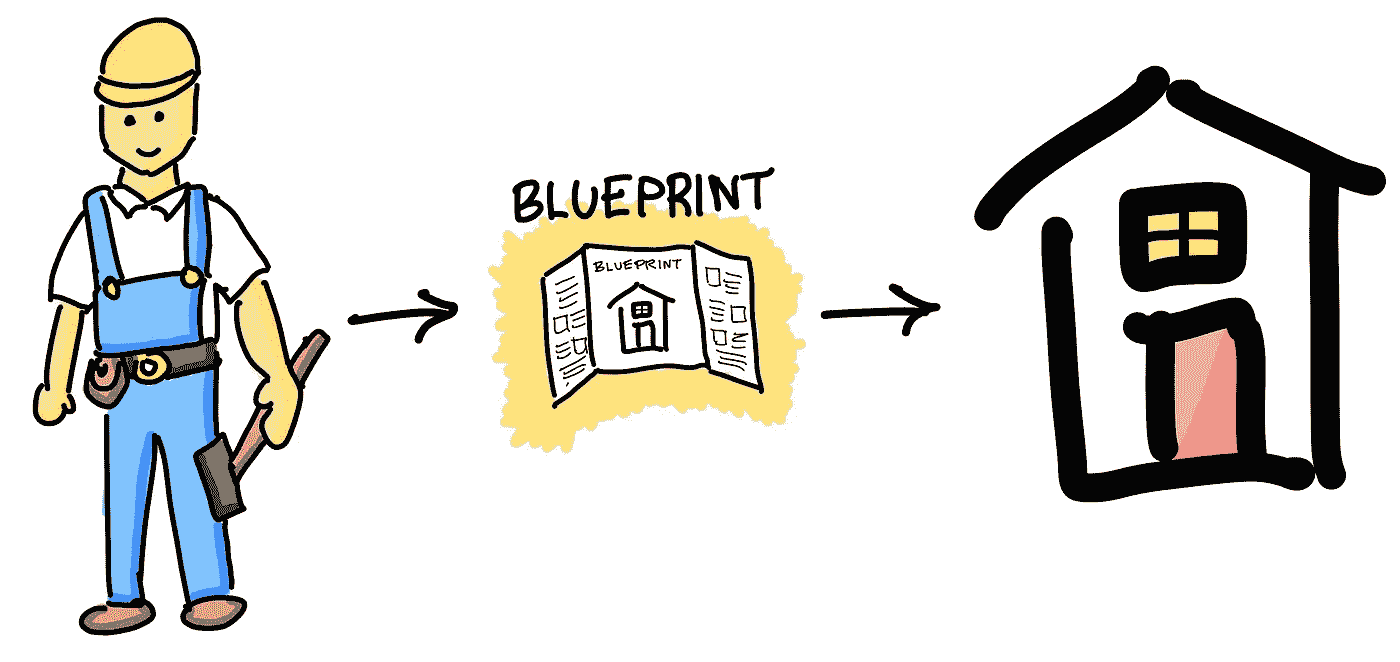 BLUEPRINT
BLUEPRINT